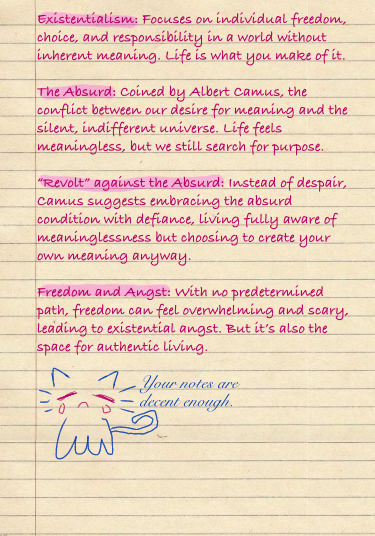 Existentialism: Focuses on individual freedom,
choice, and responsibility in a world without
inherent meaning. Life is what you make of it.
The Absurd: Coined by Albert Camus, the
conflict between our desire for meaning and the
silent, indifferent universe. Life feels
meaningless, but we still search for purpose.
“Revolt” against the Absurd: Instead of despair,
Camus suggests embracing the absurd
condition with defiance, living fully aware of
meaninglessness but choosing to create your
own meaning anyway.
Freedom and Angst: With no predetermined
path, freedom can feel overwhelming and scary,
leading to existential angst. But it's also the
space for authentic living.
Your notes are
decent enough.